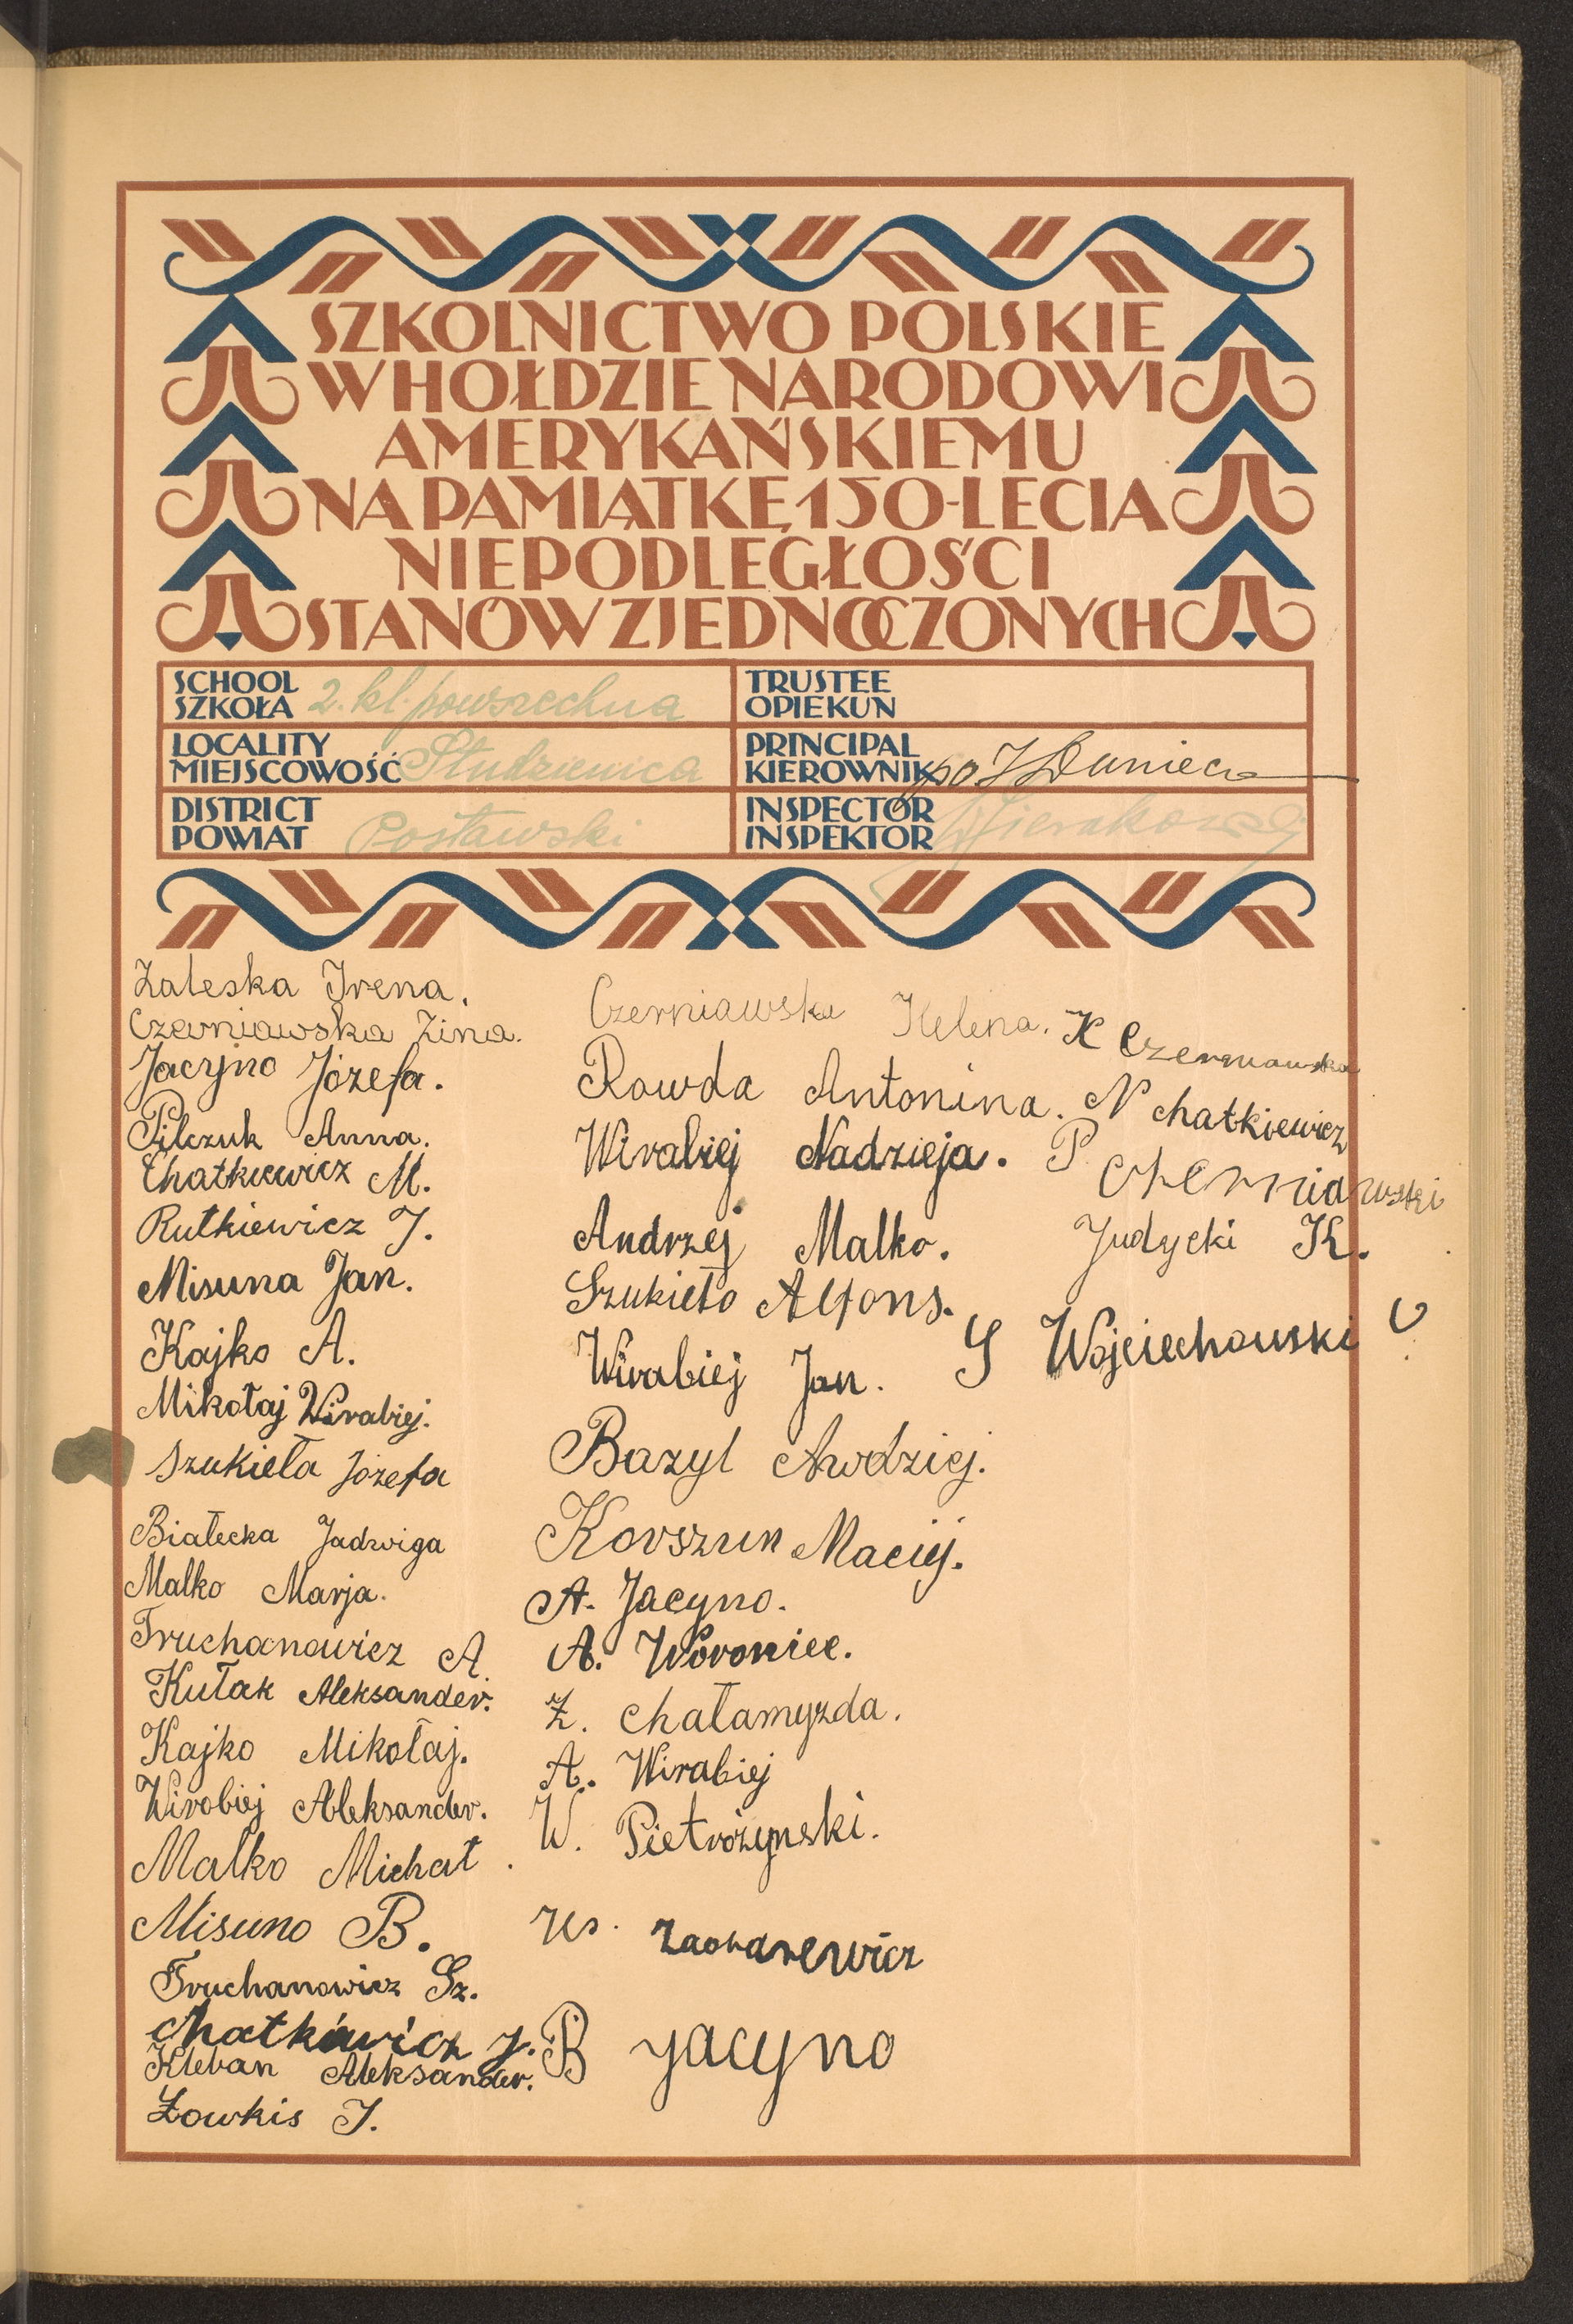 SZKOLNICTWO POLSKIE
W HOŁDZIE NARODOWI
AMERYKAŃSKIEMU
NA PAMIĄTKĘ 150-LECIA
NIEPODLEGŁOŚCI
STANÓW ZJEDNOCZONYCH
SCHOOL
SZKOŁA 2. kl. powszechna
LOCALITY
MIEJSCOWOŚĆ Studzienica
DISTRICT
POWIAT Postawski
TRUSTEE
OPIEKUN
PRINCIPAL
KIEROWNIK
INSPECTOR
INSPEKTOR
Zaleska Irena.
Czerniawska Zina.
Jacyno Józefa.
Pilczuk Anna.
Chatkiewicz M.
Rutkiewicz J.
Misuna Jan.
Kajko A.
Mikołaj Wirabiej.
Szukieła Józefa
Białecka Jadwiga
Malko Marja.
Truchanowicz A
Kułak Aleksander.
Kajko Mikołaj.
Wirobiej Aleksander.
Malko Michał.
Misuno B.
Truchanowicz Sz.
Chatkiwicz J.
Kleban Aleksander.
Łowkis J.
Czerniawska Helena.
Rowda Antonina.
Wirabiej Nadzieja.
Andrzej Malko.
Szukieło Alfons.
Wirabiej Jan.
Bazyl Awdziej.
Korszun Maciej.
A. Jacyno.
A. Woroniec.
Z. Chałamyzda.
A. Wirabiej
W. Pietrożynski.
B Jacyno
K Czerniawska
N Chatkiewicz
P Czerniawski
Judycki K.
S Wojciechowski